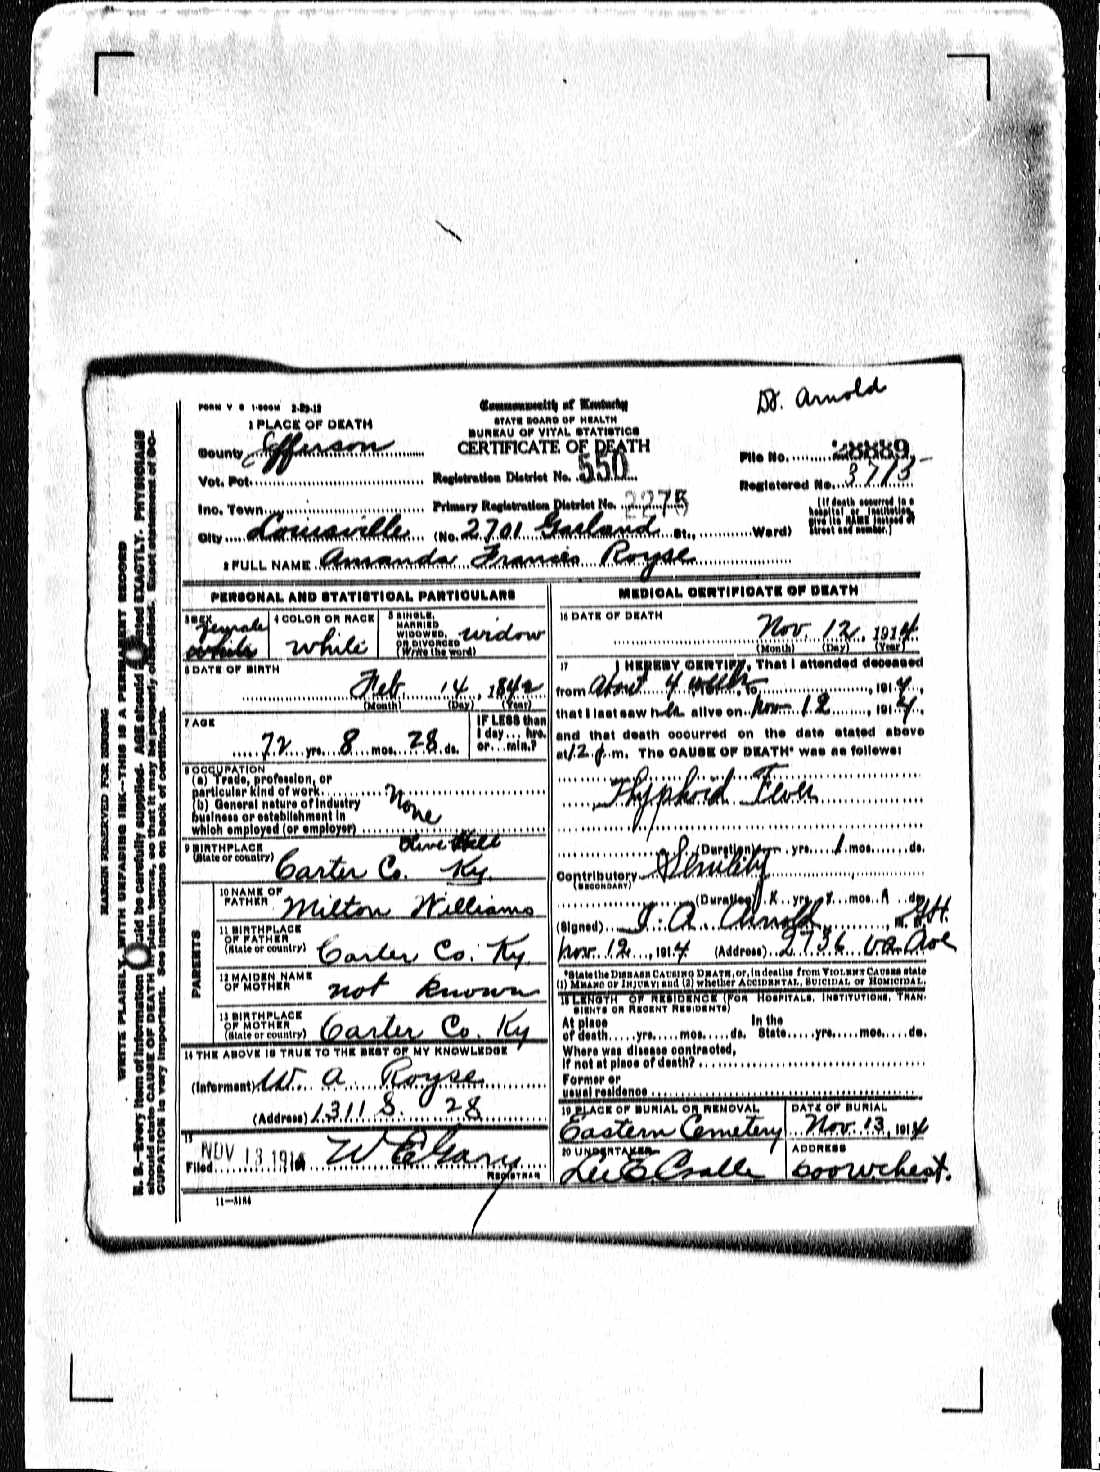 Dr. Arnold
FORM V S 1-500M 2-29-12
Commonwealth of Kentucky
STATE BOARD OF HEALTH
BUREAU OF VITAL STATISTICS
CERTIFICATE OF DEATH
1 PLACE OF DEATH
County Jefferson
Vot. Pct.
Inc. Town
City Louisville (No. 2701 Garland St., Ward)
Registration District No. 550
Primary Registration District No. 2275
File No. 28889
Registered No. 3713
[If death occurred in a
hospital or institution,
give its NAME instead of
street and number.]
2 FULL NAME Amanda Frances Royse
PERSONAL AND STATISTICAL PARTICULARS
3 SEX female white
4 COLOR OR RACE White
5 SINGLE, MARRIED WIDOWED, OR DIVORCED (Write the word) widow
6 DATE OF BIRTH
Feb 14, 1842
(Month) (Day) (Year)
7 AGE
72 yrs. 8 mos. 28 ds.
IF LESS than
1 day... hrs.
or... min.?
8 OCCUPATION
(a) Trade, profession, or
particular kind of work
(b) General nature of industry
business or establishment in
which employed (or employer)
None
9 BIRTHPLACE
(State or country)
Olive Hill
Carter Co. Ky.
PARENTS
10 NAME OF FATHER Milton Williams
11 BIRTHPLACE OF FATHER (State or country) Carter Co. Ky.
12 MAIDEN NAME OF MOTHER not known
13 BIRTHPLACE OF MOTHER (State or country) Carter Co. Ky
14 THE ABOVE IS TRUE TO THE BEST OF MY KNOWLEDGE
(Informant) W. A. Royse
(Address) 1311 S. 28
15
Filed NOV 13 1914
REGISTRAR
11—3184
MEDICAL CERTIFICATE OF DEATH
16 DATE OF DEATH
Nov. 12, 1914
(Month) (Day) (Year)
17 I HEREBY CERTIFY, That I attended deceased
from About 4 weeks, to, 1914,
that I last saw her alive on Nov 12, 1914,
and that death occurred on the date stated above
at 12 p.m. The CAUSE OF DEATH* was as follows:
Thyphoid Fever
(Duration) yrs. 1 mos. ds.
Contributory Senility
(SECONDARY)
(Duration) yrs. mos. ds.
(Signed) J. A. Arnold, M. D.
Nov. 12, 1914 (Address) 2736 Va. Ave
*State the DISEASE CAUSING DEATH, or, in deaths from VIOLENT CAUSES state
(1) MEANS OF INJURY; and (2) whether ACCIDENTAL, SUICIDAL OR HOMICIDAL.
18 LENGTH OF RESIDENCE (FOR HOSPITALS, INSTITUTIONS, TRAN-
SIENTS OR RECENT RESIDENTS)
At place In the
of death yrs. mos. ds. State yrs. mos. ds.
Where was disease contracted,
if not at place of death?
Former or
usual residence
19 PLACE OF BURIAL OR REMOVAL
Eastern Cemetery
DATE OF BURIAL
Nov. 13, 1914
20 UNDERTAKER
Lee E Cralle
ADDRESS
600 W. Chest.
MARGIN RESERVED FOR BINDING
WRITE PLAINLY WITH UNFADING INK—THIS IS A PERMANENT RECORD
N. B.—Every item of information should be carefully supplied. AGE should be stated EXACTLY. PHYSICIANS
should state CAUSE OF DEATH in plain terms, so that it may be properly classified. Exact statement of OC-
CUPATION is very important. See instructions on back of certificate.